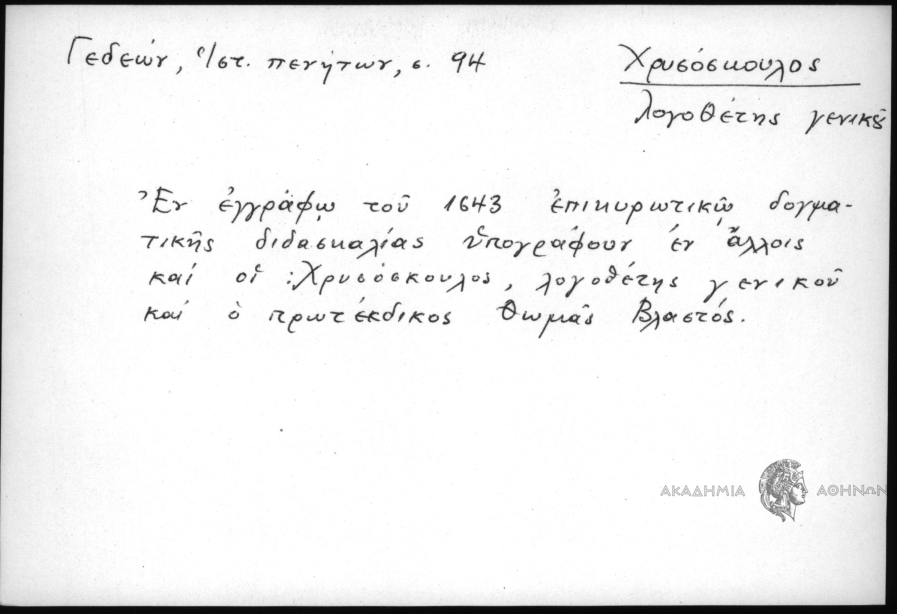 Γεδεών, Ἱστ. πενήτων, σ. 94
Χρυσόσκουλος
λογοθέτης γενικοῦ
Ἐν ἐγγράφῳ τοῦ 1643 ἐπικυρωτικῷ δογμα-
τικῆς διδασκαλίας ὑπογράφουν ἐν ἄλλοις
καί οἱ : Χρυσόσκουλος, λογοθέτης γενικοῦ
καί ὁ πρωτέκδικος Θωμᾶς Βλαστός.
ΑΚΑΔΗΜΙΑ ΑΘΗΝΩΝ